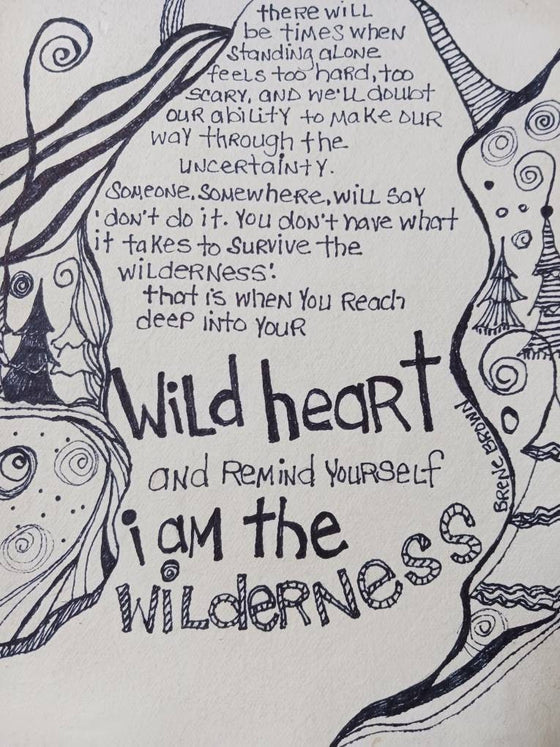 there will
be times when
standing alone
feels too hard, too
scary, and we'll doubt
our ability to make our
way through the
uncertainty.
Someone, somewhere, will say
'don't do it. You don't have what
it takes to survive the
wilderness.'
that is when you reach
deep into your
wild heart
and remind yourself
i am the
wilderness
Brene Brown